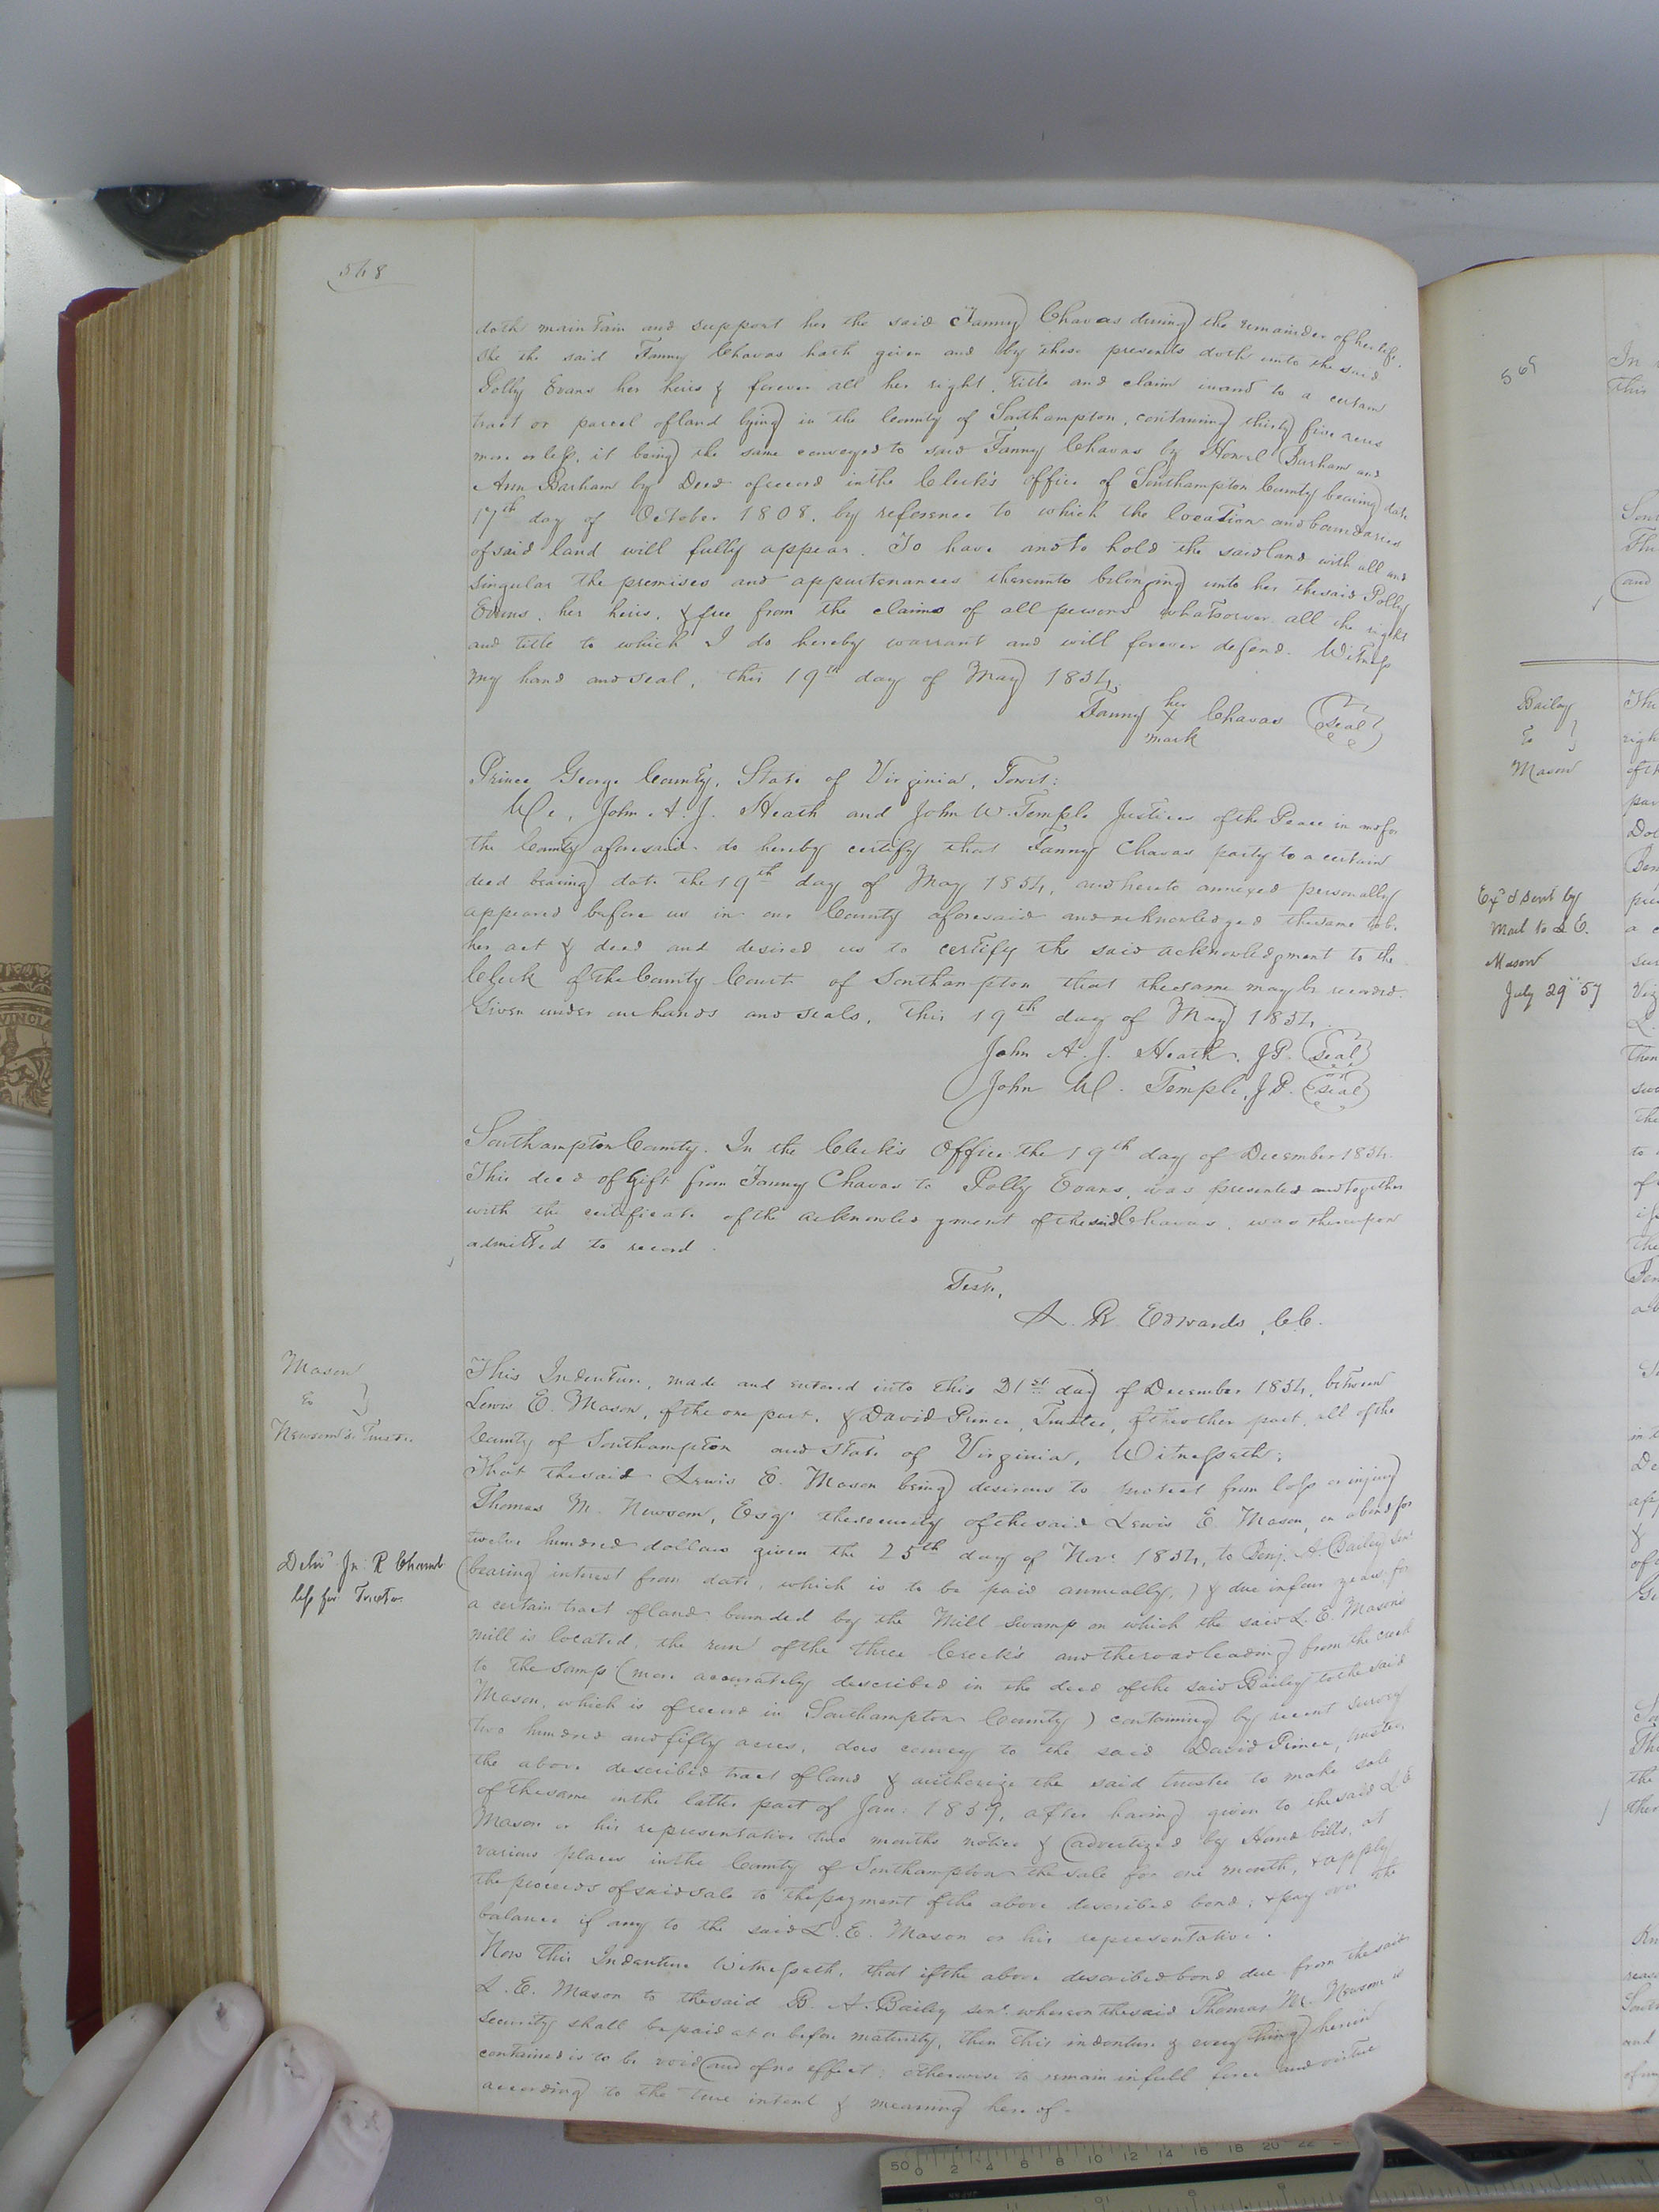 568
doth maintain and support her the said Fanny Chavas during the remainder of her life.
She the said Fanny Chavas hath given and by these presents doth unto the said
Polly Evans her heirs & forever all her right, title and claim in and to a certain
tract or parcel of land lying in the County of Southampton, containing thirty five acres
more or less, it being the same conveyed to said Fanny Chavas by Howel Barham and
Ann Barham by Deed of record in the Clerk's office of Southampton County bearing date
17th day of October 1808, by reference to which the location and boundaries
of said land will fully appear. To have and to hold the said land with all and
singular the premises and appurtenances thereunto belonging unto her the said Polly
Evans, her heirs, & free from the claims of all persons whatsoever all the right
and title to which I do hereby warrant and will forever defend. Witness
my hand and seal, this 19th day of May 1854.
her
Fanny X Chavas (seal)
mark
Prince George County, State of Virginia, Towit:
We, John A. J. Heath and John W. Temple Justices of the Peace in and for
the County aforesaid do hereby certify that Fanny Chavas party to a certain
deed bearing date the 19th day of May 1854, and hereto annexed personally
appeared before us in our County aforesaid and acknowledged the same to be
her act & deed and desired us to certify the said acknowledgment to the
Clerk of the County Court of Southampton that the same may be recorded.
Given under our hands and seals, this 19th day of May 1854.
John A. J. Heath, J.P. (seal)
John W. Temple, J.P. (seal)
Southampton County. In the Clerk's Office the 19th day of December 1854.
This deed of Gift from Fanny Chavas to Polly Evans, was presented and together
with the certificate of the acknowledgment of the said Chavas, was thereupon
admitted to record.
Teste,
L. R. Edwards, C.C.
Mason
To }
Newsom's Trustee
This Indenture, made and entered into this 21st day of December 1854, between
Lewis E. Mason, of the one part, & David Prince, Trustee, of the other part, all of the
County of Southampton and State of Virginia, Witnesseth:
That the said Lewis E. Mason being desirous to protect from loss or injury
Thomas M. Newsom, Esqr the security of the said Lewis E. Mason, on a bond for
twelve hundred dollars given the 25th day of Nov. 1854, to Benj. A. Bailey Senr
Delivd Jn. R
for Trustee
(bearing interest from date, which is to be paid annually,) & due in four years, for
a certain tract of land bounded by the Mill Swamp on which the said L. E. Mason's
mill is located, the run of the three Creeks and the road leading from the creek
to the samp (more accurately described in the deed of the said Bailey to the said
Mason, which is of record in Southampton County) containing by recent survey
two hundred and fifty acres, does convey to the said David Prince, trustee,
the above described tract of land & authorize the said trustee to make sale
of the same in the latter part of Jan: 1859, after having given to the said L E
Mason or his representative two months notice & (advertized by Hand bills, at
various places in the County of Southampton the sale for one month, & apply
the proceeds of said sale to the payment of the above described bond; & pay over the
balance if any to the said L. E. Mason or his representative.
Now This Indenture Witnesseth, that if the above described bond due from the said
L. E. Mason to the said B. A. Bailey senr. whereon the said Thomas M. Newsom is
security shall be paid at or before maturity, then this indenture & every thing herein
contained is to be void and of no effect; otherwise to remain in full force and virtue
according to the true intent & meaning here of.
569
Bailey
To }
Mason
Exd & sent by
Mail to L E.
Mason
July 29" 57
In
this
Sou
This
and